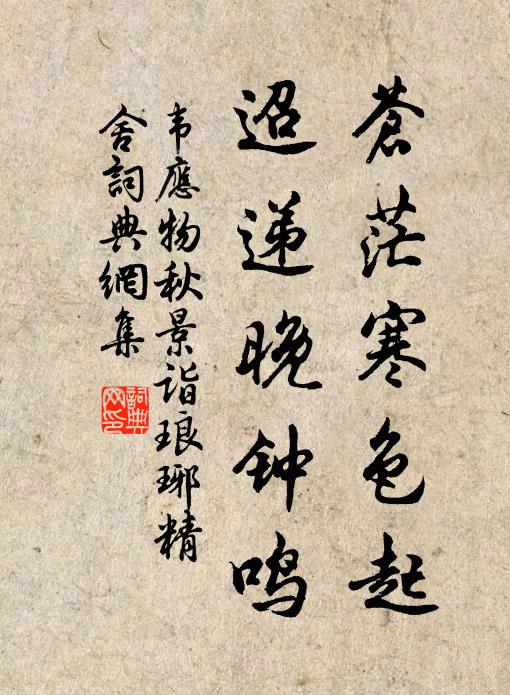 蒼茫寒色起
迢递晚钟鸣
韦應物秋景诣琅琊精
舍詞典網集
詞典
网印